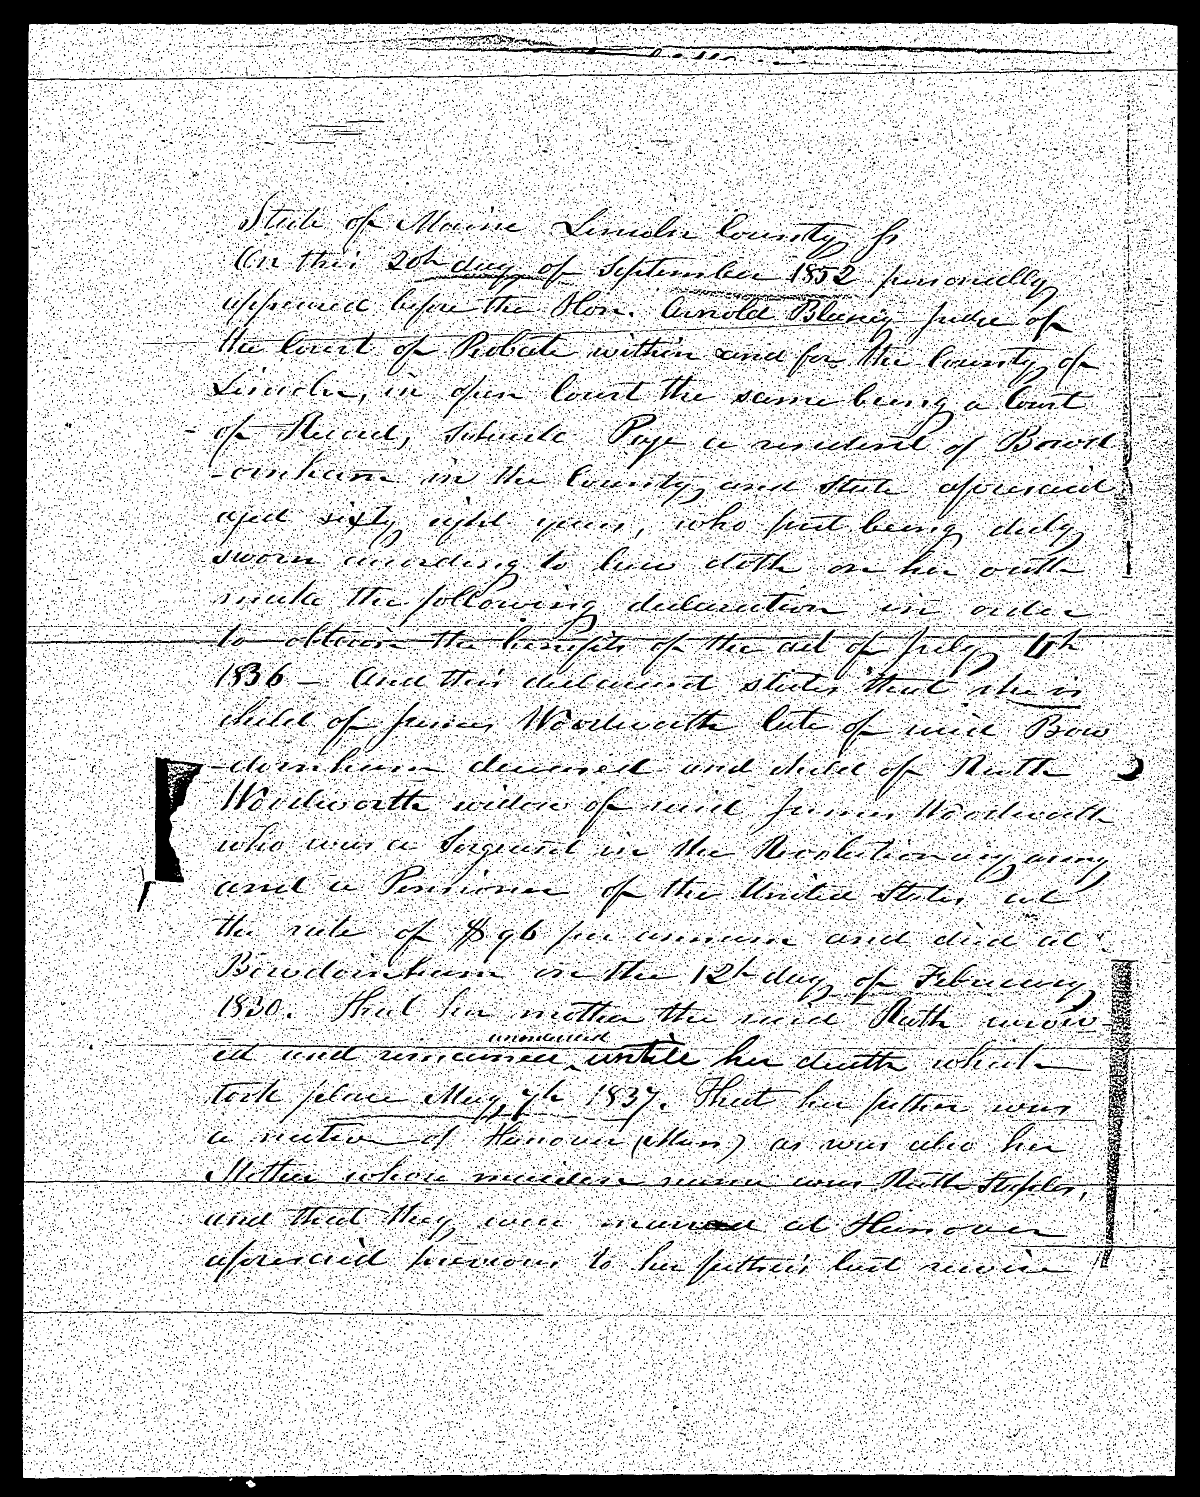 State of Maine Lincoln County Ss
On this 20th day of September 1852 personally
appeared before the Hon. Arnold Blaney Judge of
the Court of Probate within and for the County of
Lincoln, in open Court the same being a Court
of Record, Page a resident of Bowd
-oinham in the County and State aforesaid
aged sixty eight years, who first being duly
sworn according to law doth on her oath
make the following declaration in order
to obtain the benefits of the act of July 4th
1836 — And this declarant states that she is
child of James Woodworth late of said Bow
-doinham deceased and child of Ruth
Woodworth widow of said James Woodworth
who was a Sergeant in the Revolutionary army
and a Pensioner of the United States at
the rate of $96 per annum and died at
Bowdoinham on the 12th day of February
1830. That her mother the said Ruth surviv-
ed and remained unmarried untile her death which
took place May 7th 1837. That her father was
a native of Hanover (Mass) as was also her
Mother whose maiden name was Ruth Staples,
and that they were married at Hanover
aforesaid previous to her father's last service